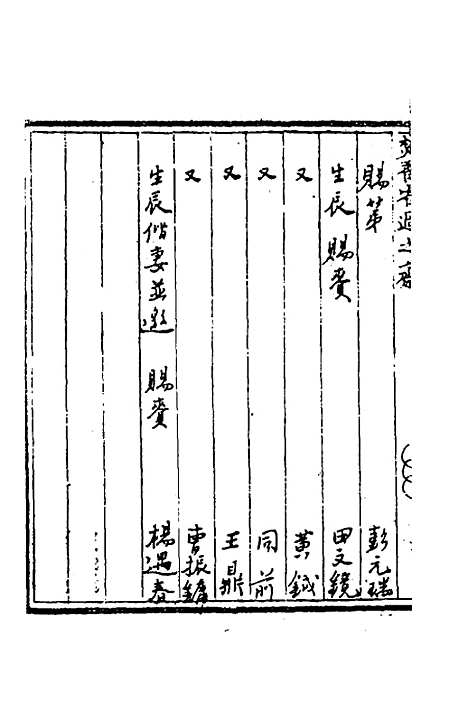 賜第 彭元瑞
生辰 賜賚 田文鏡
又 黃鉞
又 同前
又 王鼎
又 曹振鏞
生辰偕妻並邀 賜賚 楊遇春